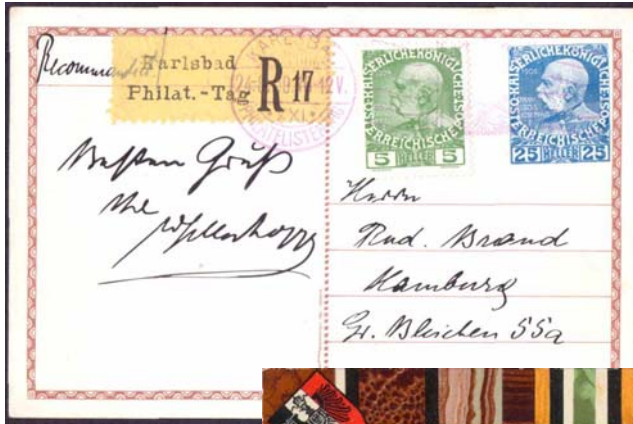 Recommandirt
Karlsbad
Philat.-Tag
R 17
KAISERLICHE KÖNIGLICHE ÖSTERREICHISCHE
5 HELLER 5
KAISERLICHE KÖNIGLICHE ÖSTERREICHISCHE
25 HELLER 25
Besten Gruß
Herrn
Rud. Brand
Hamburg
Gr. Bleichen 55a